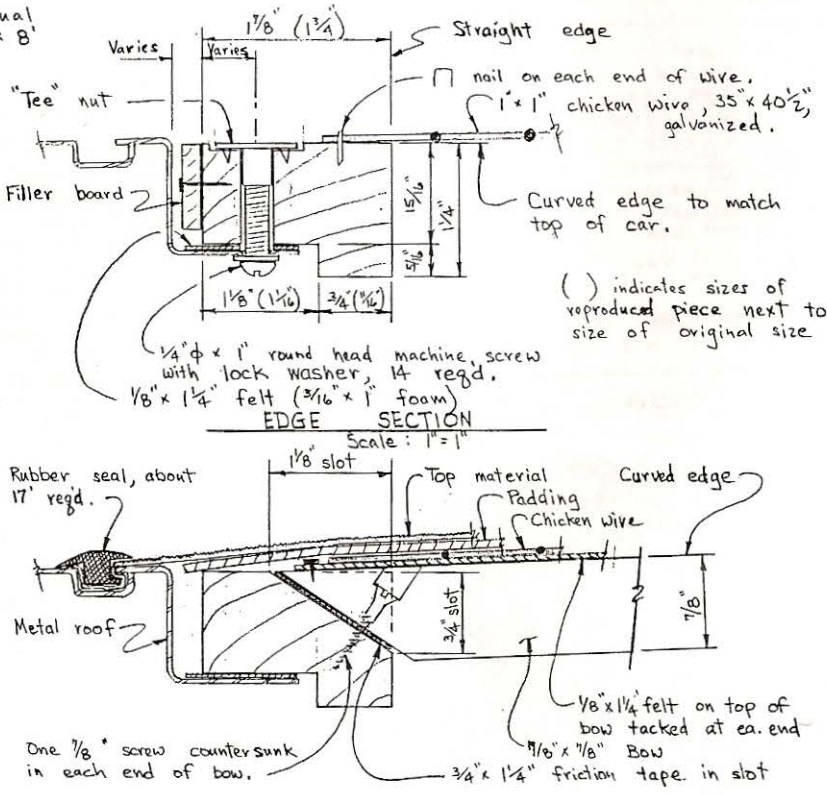 ual
x 8'
1 7/8" (1 3/4")
Straight edge
Varies
Varies
"Tee" nut
⊓ nail on each end of wire.
1" x 1" chicken wire, 35" x 40 1/2",
galvanized.
Filler board
15/16"
1 1/4"
5/16"
Curved edge to match
top of car.
1 1/8" (1 1/16")
3/4" (11/16")
( ) indicates sizes of
reproduced piece next to
size of original size
1/4" ϕ x 1" round head machine screw
with lock washer, 14 req'd.
1/8" x 1 1/4" felt (3/16" x 1" foam)
EDGE SECTION
Scale : 1" = 1"
1 1/8" slot
Rubber seal, about
17' req'd.
Top material
Padding
Chicken wire
Curved edge
Metal roof
3/4" slot
7/8"
1/8" x 1 1/4" felt on top of
bow tacked at ea. end
7/8" x 7/8" Bow
One 7/8" screw countersunk
in each end of bow.
3/4" x 1 1/4" friction tape in slot